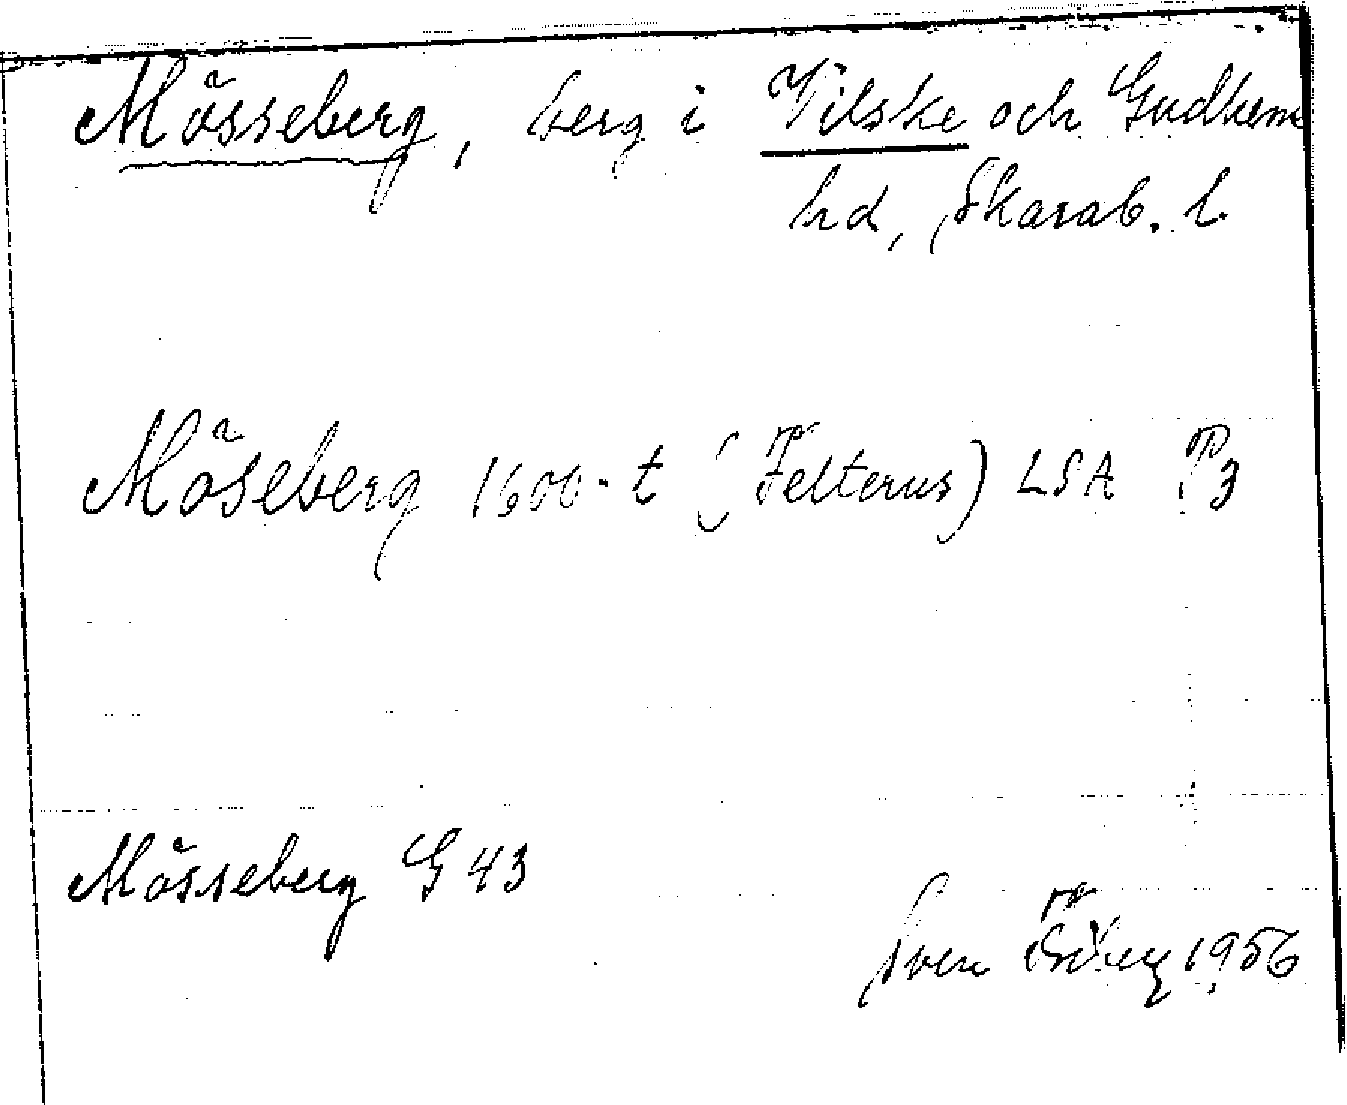 Mösseberg, berg i Vilske och Gudhem
hd, Skarab. l.
Möseberg 1600-t (Felterus) LSA P3
Mösseberg G 43
Sven 1956